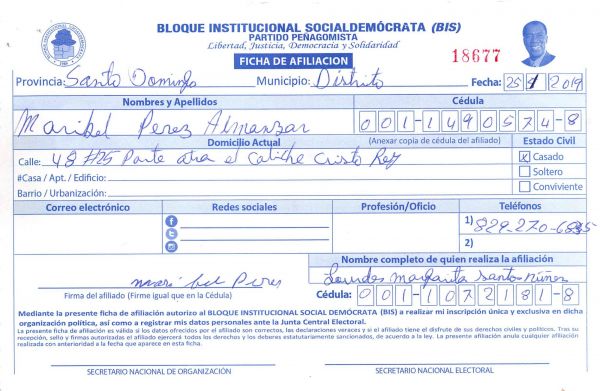 BLOQUE INSTITUCIONAL SOCIALDEMÓCRATA (BIS)
PARTIDO PEÑAGOMISTA
Libertad, Justicia, Democracia y Solidaridad
FICHA DE AFILIACION
18677
Provincia: Santo Domingo Municipio: Distrito Fecha: 25 2019
Nombres y Apellidos Cédula
Maribel Perez Almanzar 001-1490574-8
Domicilio Actual (Anexar copia de cédula del afiliado) Estado Civil
Calle: 48 #25 Parte atra el Caliche Cristo Rey X Casado
#Casa / Apt. / Edificio: Soltero
Barrio / Urbanización: Conviviente
Correo electrónico Redes sociales Profesión/Oficio Teléfonos
1) 829-270-6835
2)
Nombre completo de quien realiza la afiliación
Maribel Peres Lourdes Margarita Santos Núñez
Firma del afiliado (Firme igual que en la Cédula) Cédula: 001-1072181-8
Mediante la presente ficha de afiliación autorizo al BLOQUE INSTITUCIONAL SOCIAL DEMÓCRATA (BIS) a realizar mi inscripción única y exclusiva en dicha
organización política, así como a registrar mis datos personales ante la Junta Central Electoral.
La presente ficha de afiliación es válida y los datos ofrecidos por el afiliado son correctos, las declaraciones veraces y si el afiliado tiene el disfrute de sus derechos civiles y políticos. Tras su
recepción, sello y firmas autorizadas el afiliado ejercerá todos los derechos y los deberes estatutariamente sancionados, de acuerdo a la ley. La presente afiliación anula cualquier afiliación
realizada con anterioridad a la fecha que aparece en esta ficha.
SECRETARIO NACIONAL DE ORGANIZACIÓN SECRETARIO NACIONAL ELECTORAL